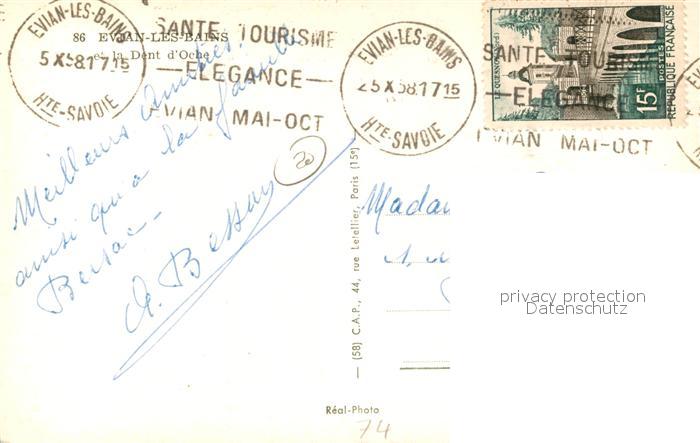 86 EVIAN-LES-BAINS
et la Dent d'Oche
EVIAN-LES-BAINS
5 X 58.17 15
Hte-SAVOIE
SANTE TOURISME
ELEGANCE
EVIAN MAI-OCT
EVIAN-LES-BAINS
25 X 58.17 15
Hte-SAVOIE
SANTE TOURISME
ELEGANCE
EVIAN MAI-OCT
LE QUESNOY
15F
POSTES
REPUBLIQUE FRANÇAISE
Meilleures Amitiés
ainsi qu'à la famille
A. Bessau
20
(58) C.A.P., 44, rue Letellier, Paris (15e)
Madam
privacy protection
Datenschutz
Réal-Photo
74